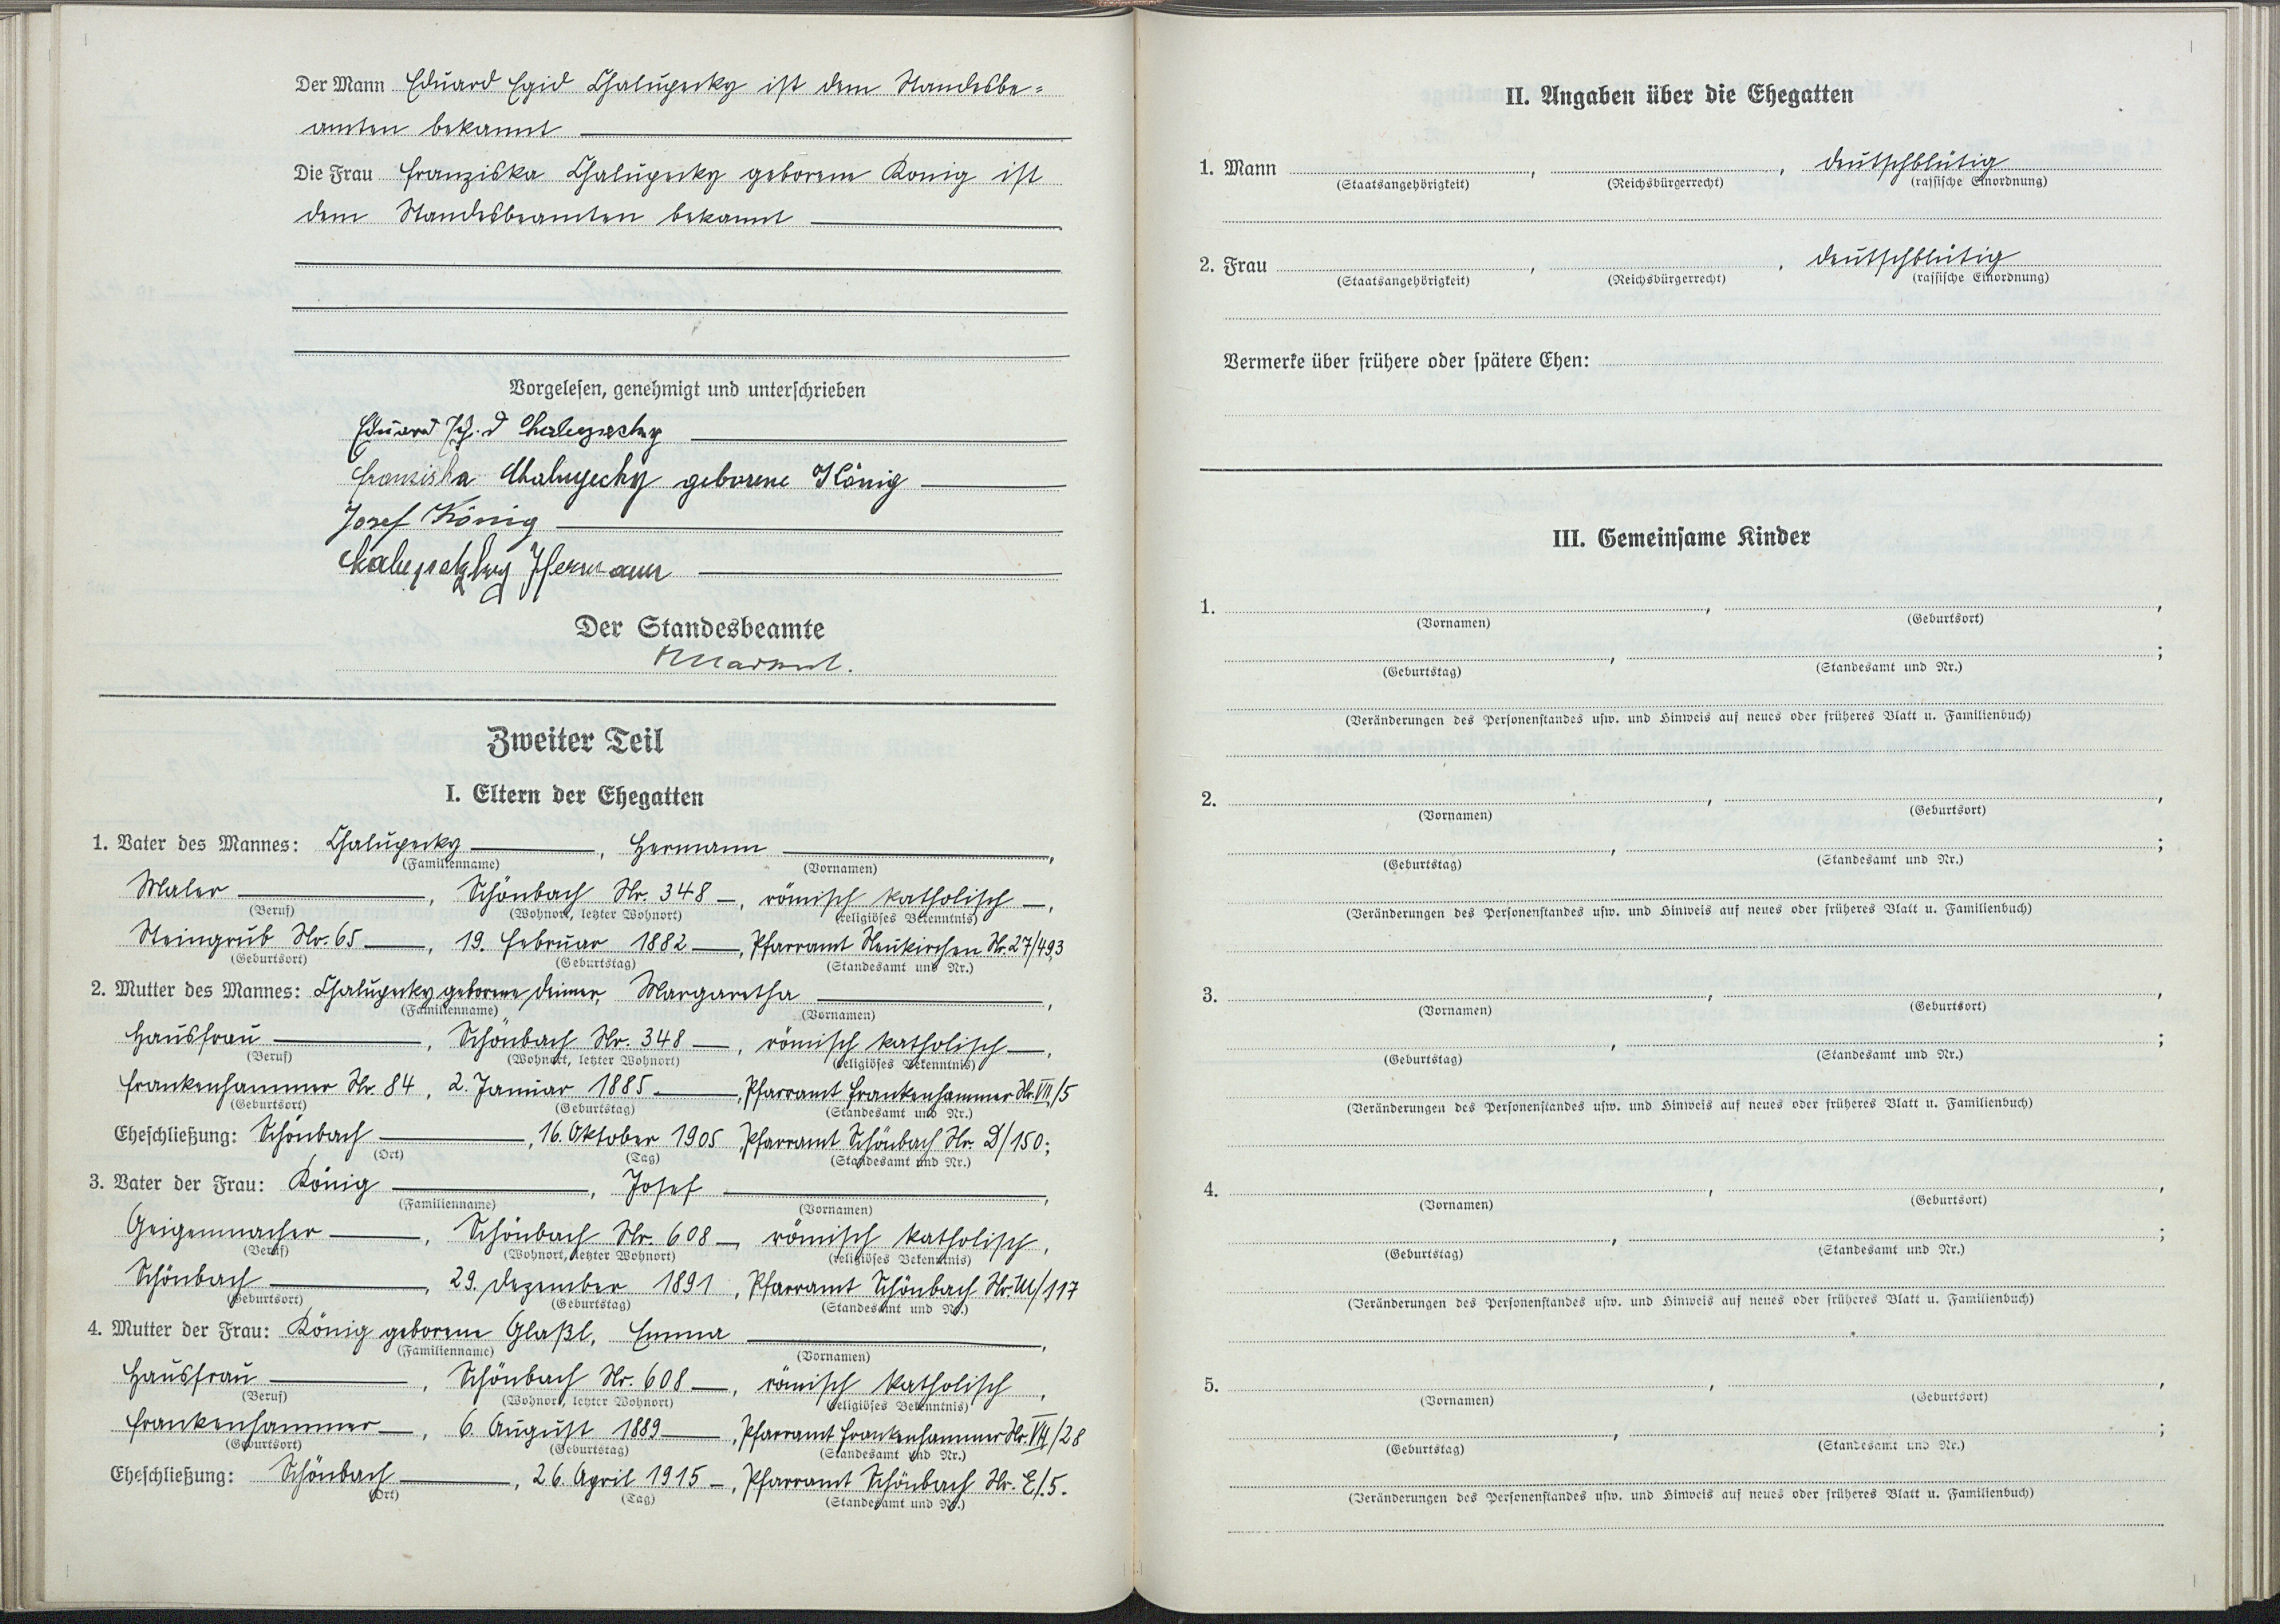 Der Mann Eduard Egid Chalupecky ist dem Standesbe=
amten bekannt
Die Frau Franziska Chalupecky geborene König ist
dem Standesbeamten bekannt
Vorgelesen, genehmigt und unterschrieben
Eduard
Franziska Chalupecky geborene König
Josef König
Hermann
Der Standesbeamte
Zweiter Teil
I. Eltern der Ehegatten
1. Vater des Mannes: Chalupecky, Hermann,
(Familienname) (Vornamen)
Maler, Schönbach Nr. 348, römisch katholisch,
(Beruf) (Wohnort, letzter Wohnort) (religiöses Bekenntnis)
Steingrub Nr. 65, 19. Februar 1882, Pfarramt Neukirchen Nr. 27/493
(Geburtsort) (Geburtstag) (Standesamt und Nr.)
2. Mutter des Mannes: Chalupecky geborene Deimer, Margaretha,
(Familienname) (Vornamen)
Hausfrau, Schönbach Nr. 348, römisch katholisch,
(Beruf) (Wohnort, letzter Wohnort) (religiöses Bekenntnis)
Frankenhammer Nr. 84, 2. Januar 1885, Pfarramt Frankenhammer Nr. VII/5
(Geburtsort) (Geburtstag) (Standesamt und Nr.)
Eheschließung: Schönbach, 16. Oktober 1905, Pfarramt Schönbach Nr. D/150;
(Ort) (Tag) (Standesamt und Nr.)
3. Vater der Frau: König, Josef,
(Familienname) (Vornamen)
Geigenmacher, Schönbach Nr. 608, römisch katholisch,
(Beruf) (Wohnort, letzter Wohnort) (religiöses Bekenntnis)
Schönbach, 29. Dezember 1891, Pfarramt Schönbach Nr. /117
(Geburtsort) (Geburtstag) (Standesamt und Nr.)
4. Mutter der Frau: König geborene Glaßl, Emma,
(Familienname) (Vornamen)
Hausfrau, Schönbach Nr. 608, römisch katholisch,
(Beruf) (Wohnort, letzter Wohnort) (religiöses Bekenntnis)
Frankenhammer, 6. August 1889, Pfarramt Frankenhammer Nr. VII/28
(Geburtsort) (Geburtstag) (Standesamt und Nr.)
Eheschließung: Schönbach, 26. April 1915, Pfarramt Schönbach Nr. E/5.
(Ort) (Tag) (Standesamt und Nr.)
II. Angaben über die Ehegatten
1. Mann , , deutschblütig
(Staatsangehörigkeit) (Reichsbürgerrecht) (rassische Einordnung)
2. Frau , , deutschblütig
(Staatsangehörigkeit) (Reichsbürgerrecht) (rassische Einordnung)
Vermerke über frühere oder spätere Ehen:
III. Gemeinsame Kinder
1. , ,
(Vornamen) (Geburtsort)
, ;
(Geburtstag) (Standesamt und Nr.)
(Veränderungen des Personenstandes usw. und Hinweis auf neues oder früheres Blatt u. Familienbuch)
2. , ,
(Vornamen) (Geburtsort)
, ;
(Geburtstag) (Standesamt und Nr.)
(Veränderungen des Personenstandes usw. und Hinweis auf neues oder früheres Blatt u. Familienbuch)
3. , ,
(Vornamen) (Geburtsort)
, ;
(Geburtstag) (Standesamt und Nr.)
(Veränderungen des Personenstandes usw. und Hinweis auf neues oder früheres Blatt u. Familienbuch)
4. , ,
(Vornamen) (Geburtsort)
, ;
(Geburtstag) (Standesamt und Nr.)
(Veränderungen des Personenstandes usw. und Hinweis auf neues oder früheres Blatt u. Familienbuch)
5. , ,
(Vornamen) (Geburtsort)
, ;
(Geburtstag) (Standesamt und Nr.)
(Veränderungen des Personenstandes usw. und Hinweis auf neues oder früheres Blatt u. Familienbuch)